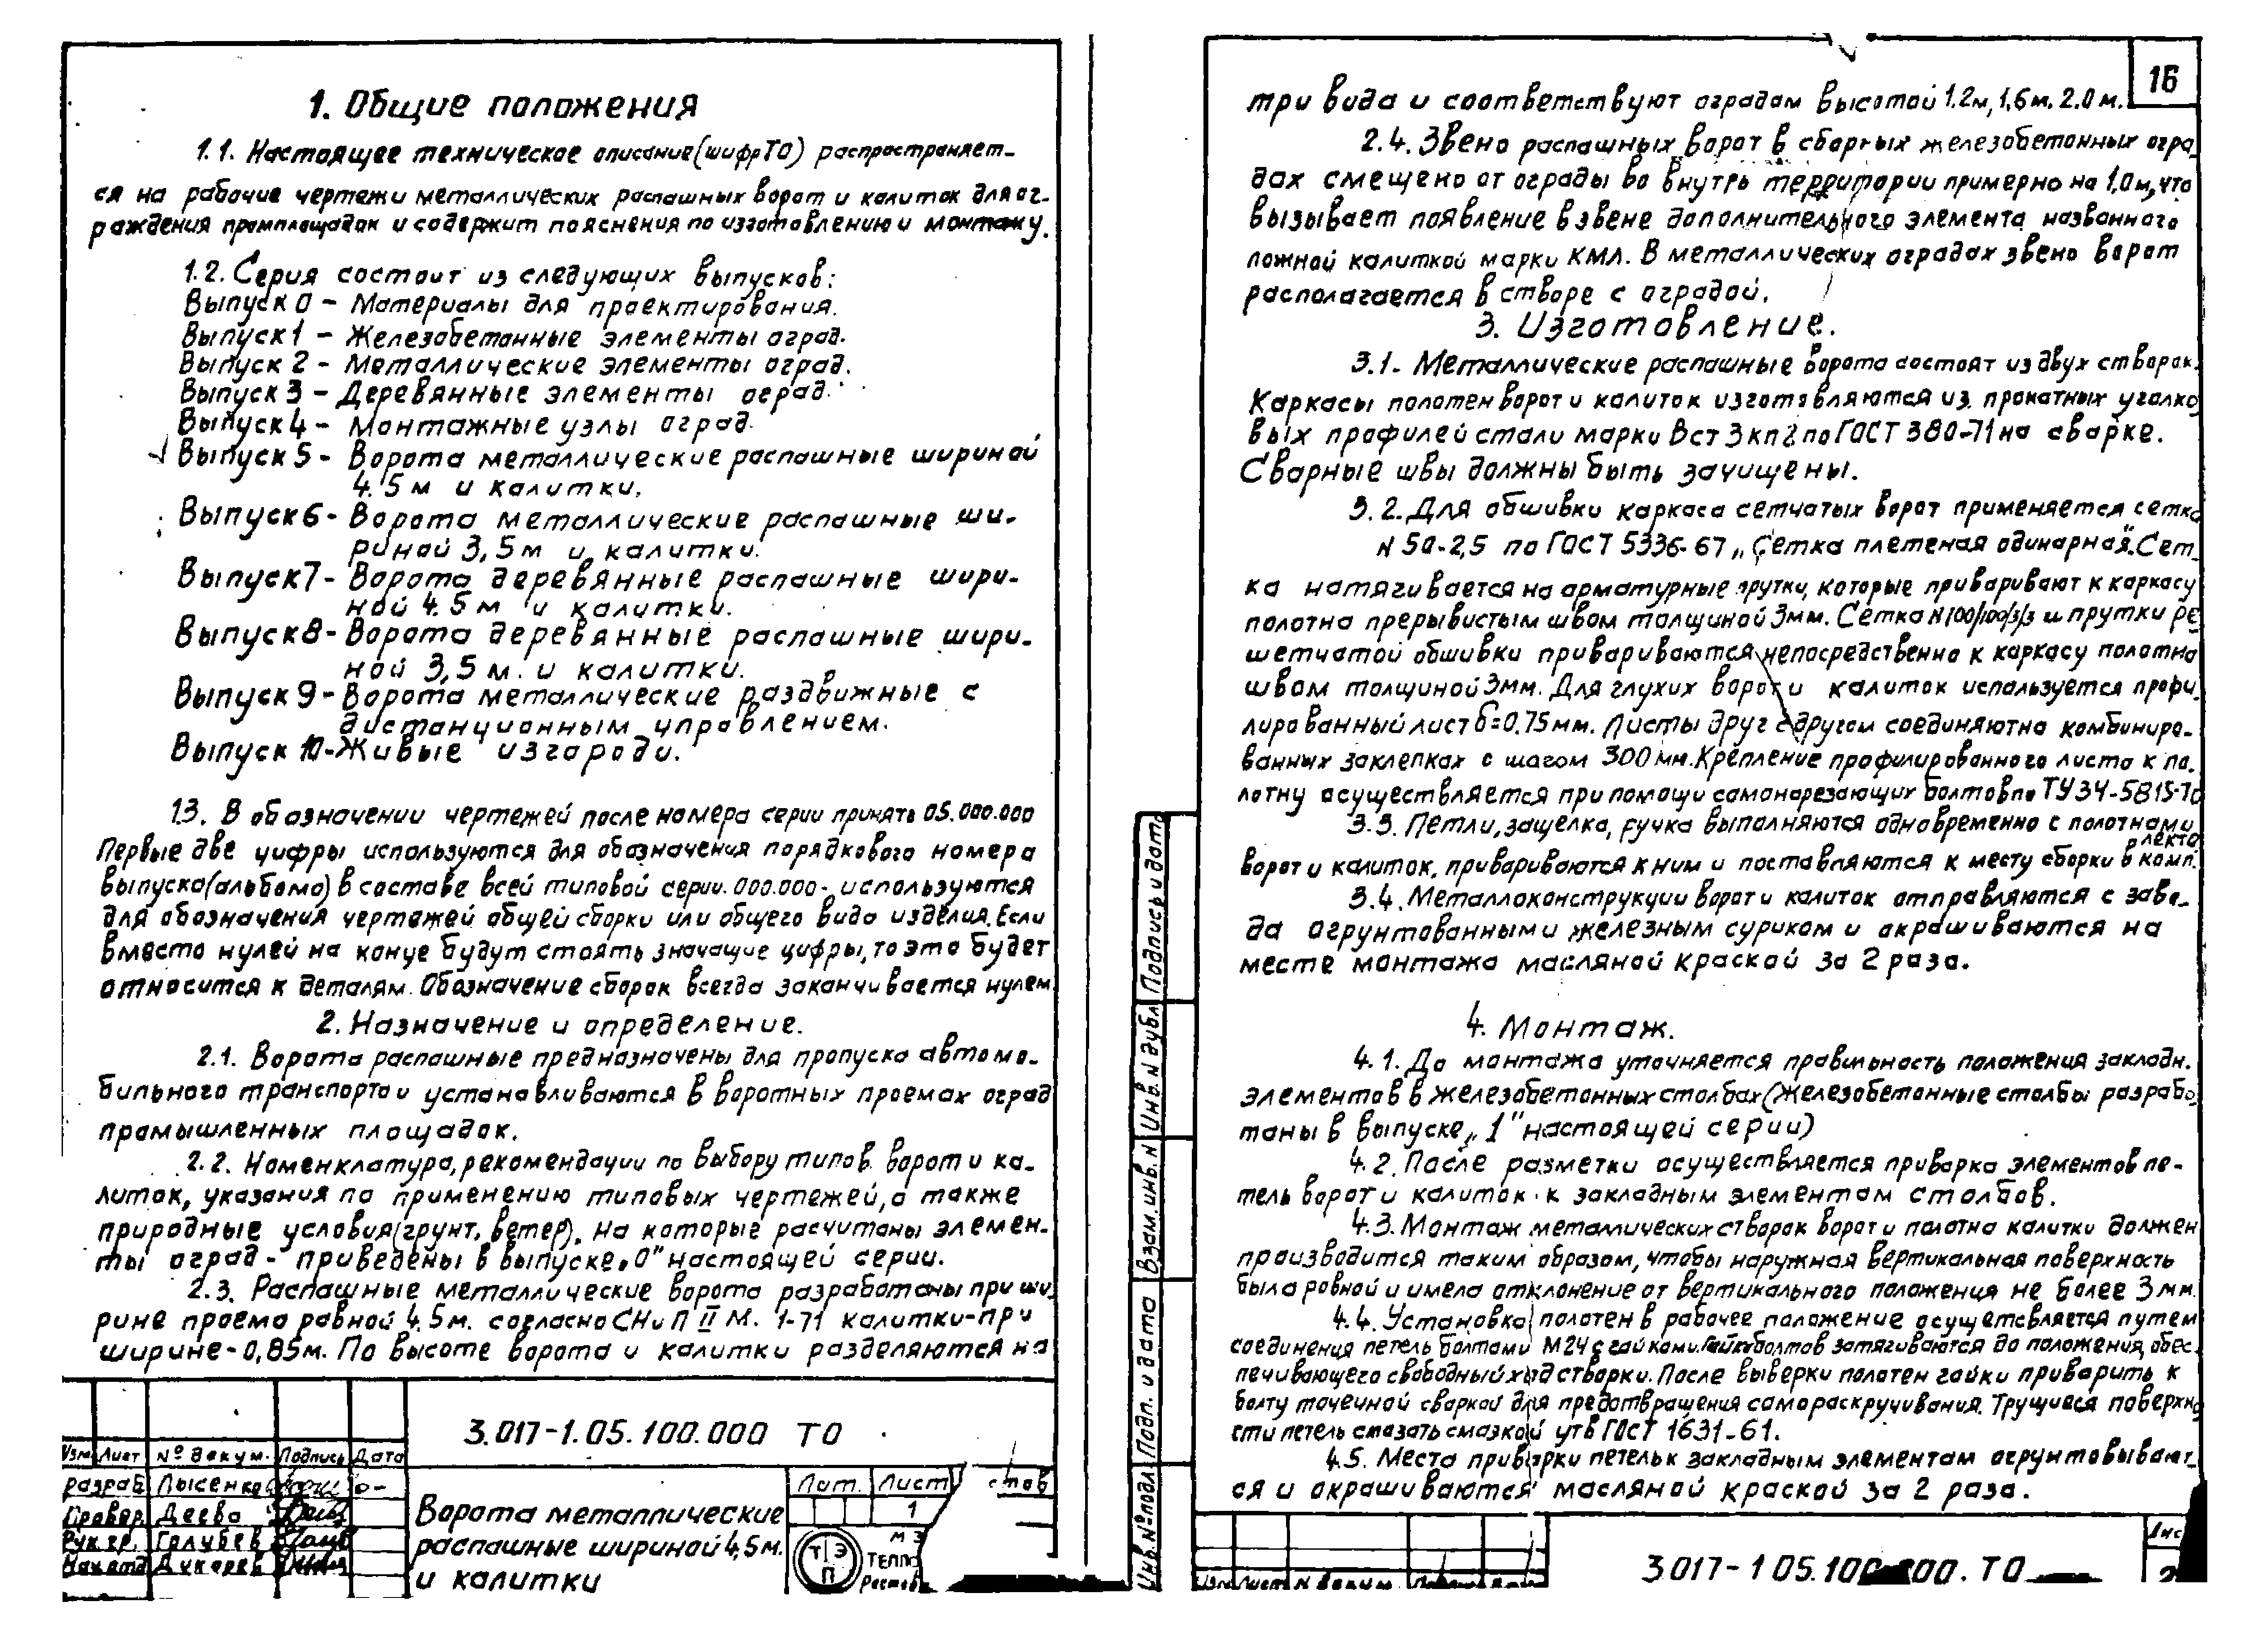 1. Общие положения
1.1. Настоящее техническое описание (шифр ТО) распространяет-
ся на рабочие чертежи металлических распашных ворот и калиток для ог-
раждения промплощадок и содержит пояснения по изготовлению и монтажу.
1.2. Серия состоит из следующих выпусков:
Выпуск 0 - Материалы для проектирования.
Выпуск 1 - Железобетонные элементы оград.
Выпуск 2 - Металлические элементы оград.
Выпуск 3 - Деревянные элементы оград.
Выпуск 4 - Монтажные узлы оград.
Выпуск 5 - Ворота металлические распашные шириной
4.5 м и калитки.
Выпуск 6 - Ворота металлические распашные ши-
риной 3,5 м и калитки.
Выпуск 7 - Ворота деревянные распашные шири-
ной 4.5 м и калитки.
Выпуск 8 - Ворота деревянные распашные шири-
ной 3,5 м. и калитки.
Выпуск 9 - Ворота металлические раздвижные с
дистанционным управлением.
Выпуск 10 - Живые изгороди.
1.3. В обозначении чертежей после номера серии принять 05.000.000
Первые две цифры используются для обозначения порядкового номера
выпуска (альбома) в составе всей типовой серии. 000.000-, используются
для обозначения чертежей общей сборки или общего вида изделия. Если
вместо нулей на конце будут стоять значащие цифры, то это будет
относится к деталям. Обозначение сборок всегда заканчивается нулем
2. Назначение и определение.
2.1. Ворота распашные предназначены для пропуска автомо-
бильного транспорта и устанавливаются в воротных проемах оград
промышленных площадок.
2.2. Номенклатура, рекомендации по выбору типов ворот и ка-
литок, указания по применению типовых чертежей, а также
природные условия (грунт, ветер), на которые расчитаны элемен-
ты оград - приведены в выпуске „0" настоящей серии.
2.3. Распашные металлические ворота разработаны при ши-
рине проема равной 4.5 м. согласно СНиП II М. 1-71 калитки - при
ширине - 0,85 м. По высоте ворота и калитки разделяются на
3.017-1.05.100.000 ТО
Изм Лист № докум. Подпись Дата
разраб Лысенко
Провер. Деева
Рук.гр. Голубев
Нач.отд Дукарев
Ворота металлические
распашные шириной 4,5 м.
и калитки
Лит. Лист
1
ТЭП
16
три вида и соответствуют оградам высотой 1.2 м, 1,6 м. 2.0 м.
2.4. Звено распашных ворот в сборных железобетонных огра
дах смещено от ограды во внутрь территории примерно на 1.0 м, что
вызывает появление в звене дополнительного элемента названного
ложной калиткой марки КМЛ. В металлических оградах звено ворот
располагается в створе с оградой.
3. Изготовление.
3.1. Металлические распашные ворота состоят из двух створок.
Каркасы полотен ворот и калиток изготовляются из прокатных уголко
вых профилей стали марки Вст 3кп2 по ГОСТ 380-71 на сварке.
Сварные швы должны быть зачищены.
3.2. Для обшивки каркаса сетчатых ворот применяется сетка
N 50-2,5 по ГОСТ 5336-67 „Сетка плетеная одинарная". Сет-
ка натягивается на арматурные прутки, которые приваривают к каркасу
полотна прерывистым швом толщиной 3мм. Сетка N 100/100/3/3 и прутки ре
шетчатой обшивки привариваются непосредственно к каркасу полотна
швом толщиной 3мм. Для глухих ворот и калиток используется профи-
лированный лист δ=0.75 мм. Листы друг с другом соединяются на комбиниро-
ванных заклепках с шагом 300 мм. Крепление профилированного листа к по-
лотну осуществляется при помощи самонарезающих болтов по ТУ 34-5815-70
3.3. Петли, защелка, ручка выполняются одновременно с полотнами
ворот и калиток, привариваются к ним и поставляются к месту сборки в комп-
лекте
3.4. Металлоконструкции ворот и калиток отправляются с заво-
да огрунтованными железным суриком и окрашиваются на
месте монтажа масляной краской за 2 раза.
4. Монтаж.
4.1. До монтажа уточняется правильность положения закладн.
элементов в железобетонных столбах (железобетонные столбы разрабо
таны в выпуске „1" настоящей серии)
4.2. После разметки осуществляется приварка элементов пе-
тель ворот и калиток к закладным элементам столбов.
4.3. Монтаж металлических створок ворот и полотна калитки должен
производится таким образом, чтобы наружная вертикальная поверхность
была ровной и имела отклонение от вертикального положения не более 3мм.
4.4. Установка полотен в рабочее положение осуществляется путем
соединения петель болтами М24 с гайками. Гайки болтов затягиваются до положения, обес-
печивающего свободный ход створки. После выверки полотен гайки приварить к
болту точечной сваркой для предотвращения самораскручивания. Трущиеся поверхно
сти петель смазать смазкой утв ГОСТ 1631-61.
4.5. Места приварки петель к закладным элементам огрунтовывают-
ся и окрашиваются масляной краской за 2 раза.
Подпись и дата
Инв. N дубл
Взам. инв. N
Подп. и дата
Инв. № подл
Изм Лист N докум.
3.017-1 05.100.000. ТО
Лис
2